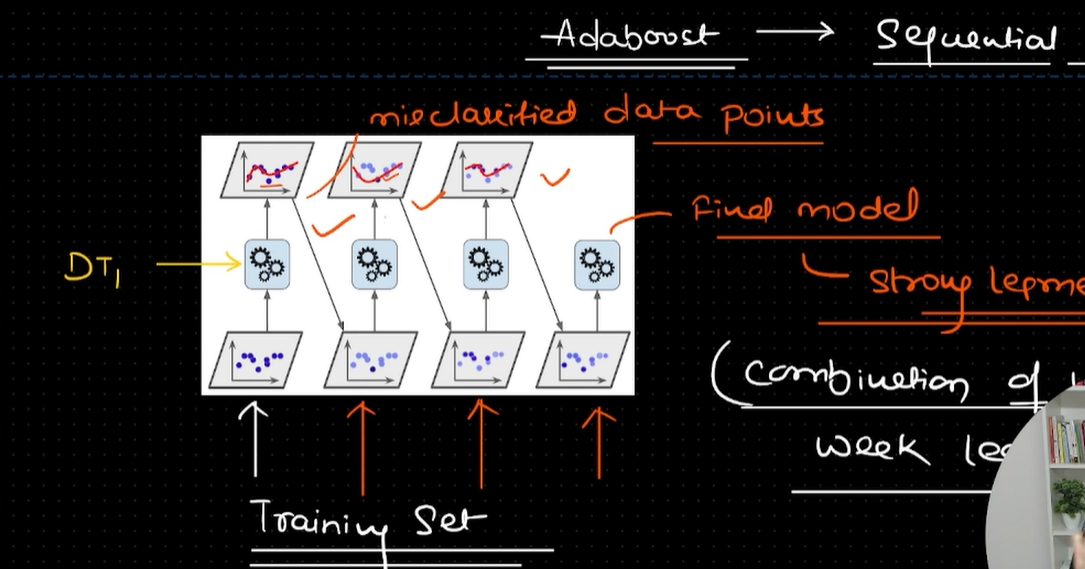 Adaboost → Sequential
misclassified data points
Final model
DT1
Strong
(Combination of
week
Training Set